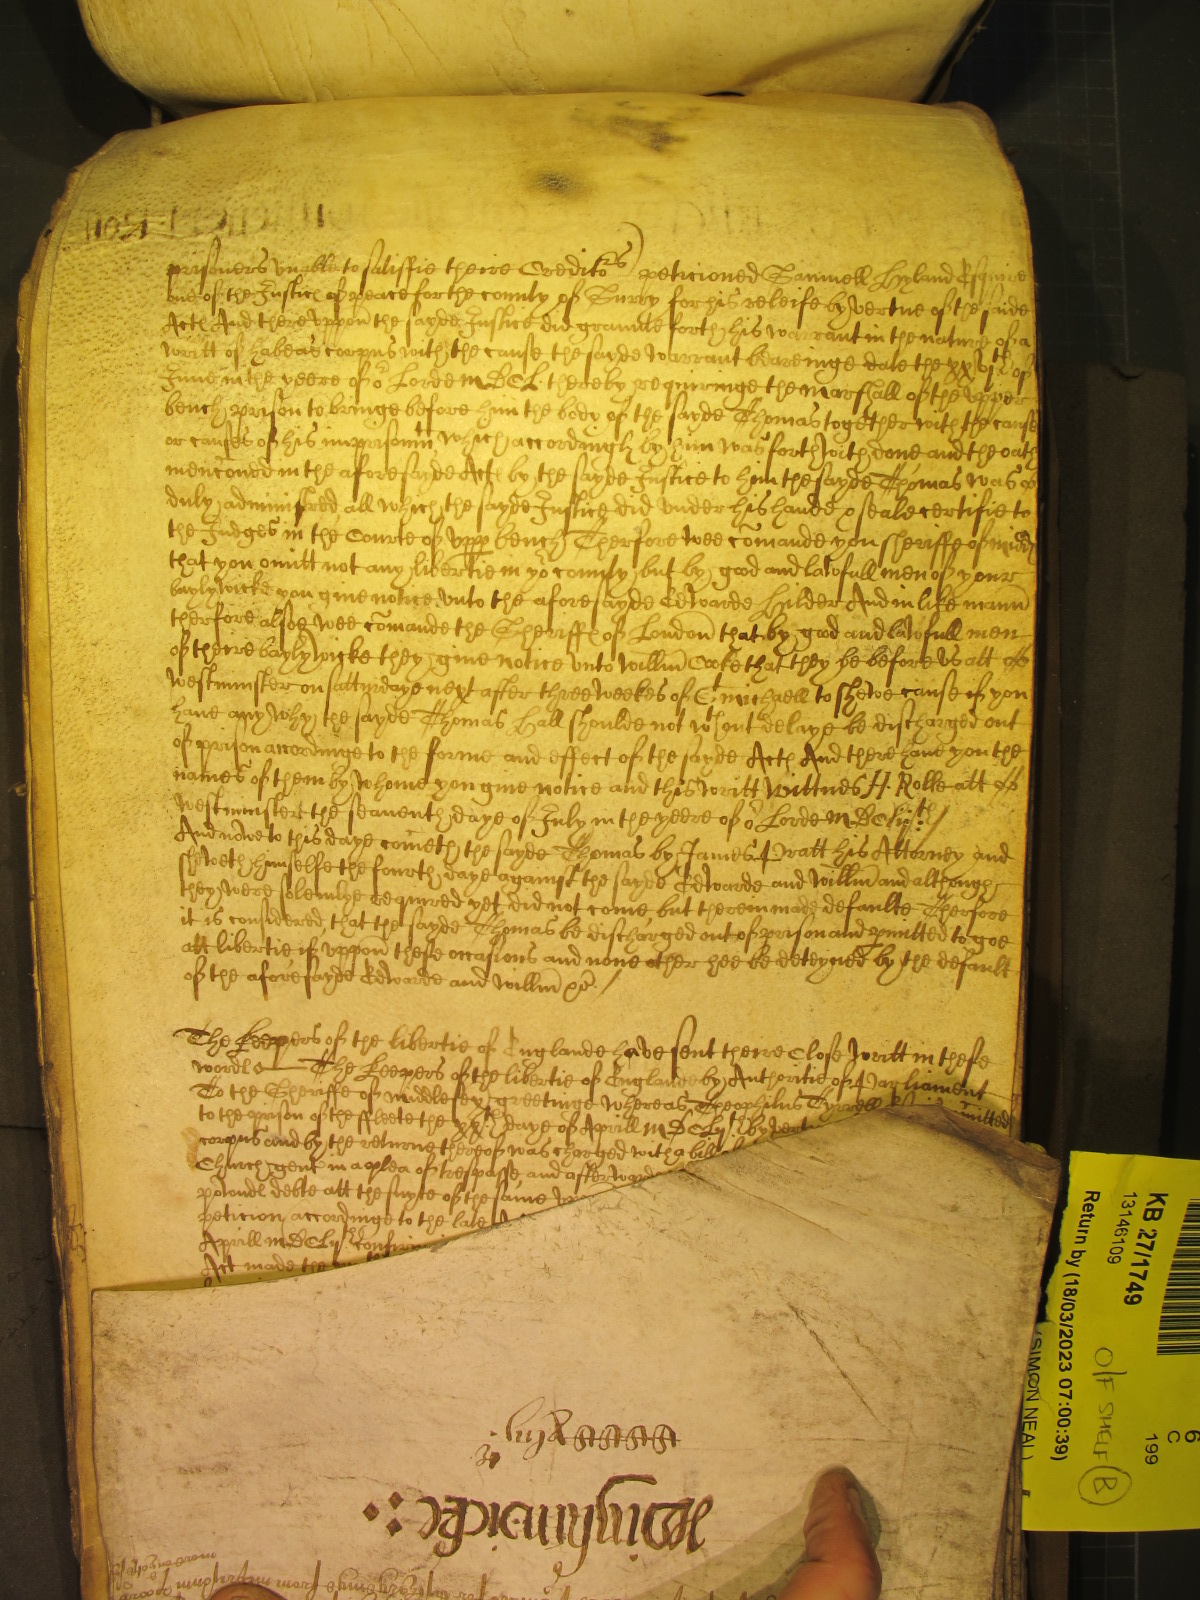 prisoners vnable to satisfie theire Creditors) peticioned Samuell Hyland Esquire
one of the Justices of peace for the county of Surry for his releife by vertue of the saide
Act And therevppon the sayde Justice did graunte forth his warrant in the nature of a
writt of habeas corpus with the cause the sayde warrant beareinge date the xxvjth of
June in the yeere of or Lorde MDCL thereby requiringe the Marshall of the vpper
bench prison to bringe before him the body of the sayde Thomas together with the cause
or causes of his imprisonmt which accordingly by him was forthwith done and the oath
menconed in the aforesayde Act by the sayde Justice to him the sayde Thomas was
duly administred all which the sayde Justice did vnder his hande & seale certifie to
the Judges in the Courte of vpp bench Therfore wee comande you sheriffe of Midd
that you omitt not any libertie in yor county but by good and lawfull men of your
baylywicke you giue notice vnto the aforesayde Edwarde Hilder And in like mann
therfore alsoe wee comande the Sheriffs of London that by good and lawfull men
of theire baylywicke they giue notice vnto Willm Cooke that they be before vs att
Westminster on satturdaye next after three weekes of St Michaell to shewe cause if you
haue any why the sayde Thomas Hall shoulde not wthout delaye be discharged out
of prison accordinge to the forme and effect of the sayde Act And there haue you the
names of them by whome you giue notice and this writt Wittnes H. Rolle att
Westminster the seauenth daye of July in the yeere of or Lorde MDCLijth
And nowe to this daye cometh the sayde Thomas by James Pratt his Attorney and
sheweth himselfe the fourth daye against the sayde Edwarde and Willm and although
they were solemlye required yet did not come but therein made defaulte Therfore
it is considered that the sayde Thomas be discharged out of prison and pmitted to goe
att libertie if vppon these occasions and none other hee be deteyned by the default
of the aforesayde Edwarde and Willm &c
The Keepers of the libertie of Englande have sent theire Close writt in these
wordes The Keepers of the libertie of Englande by Authoritie of Parliament
To the Sheriffe of Middlesex greetinge Whereas Theophilus Tyrrell comitted
to the prison of the Fleete the xxth daye of Aprill MDCLij by vertue
corpus and by the returne thereof was charged with a bill
Church gent in a plea of trespasse and afterwards
pounds debte att the suyte of the same
peticion accordinge to the late
Aprill MDCLij
Act made the
KB 27/1749
13146109
Return by (18/03/2023 07:00:39)
O/F SHELF B
6
C
199
(SIMON NEAL)